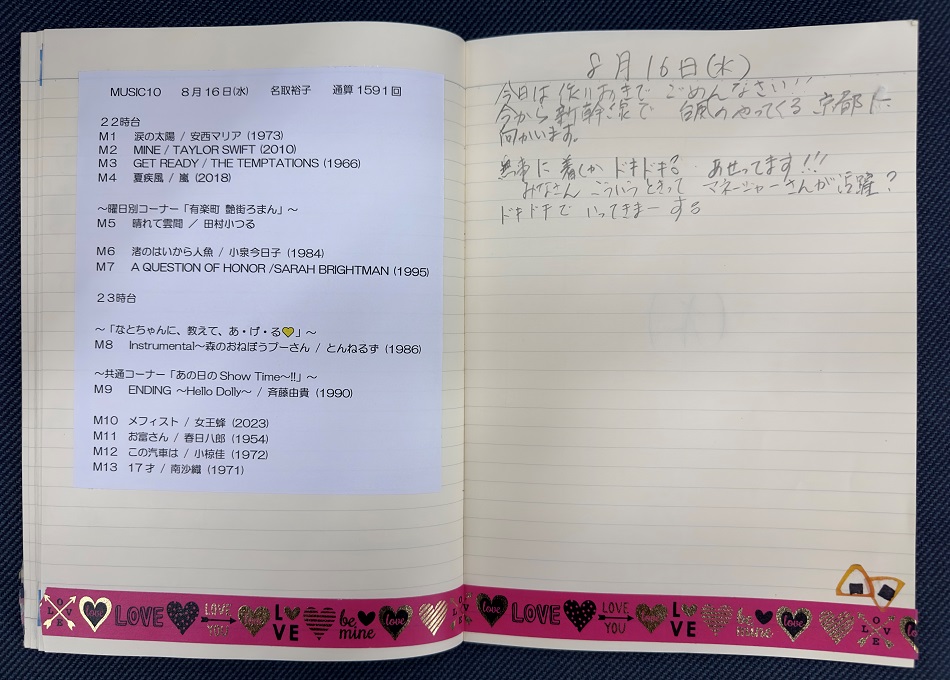 MUSIC10 8月16日(水) 名取裕子 通算1591回
22時台
M1 涙の太陽 / 安西マリア (1973)
M2 MINE / TAYLOR SWIFT (2010)
M3 GET READY / THE TEMPTATIONS (1966)
M4 夏疾風 / 嵐 (2018)
～曜日別コーナー「有楽町 艶街ろまん」～
M5 晴れて雲間 ／ 田村小つる
M6 渚のはいから人魚 / 小泉今日子 (1984)
M7 A QUESTION OF HONOR /SARAH BRIGHTMAN (1995)
23時台
～「なとちゃんに、教えて、あ・げ・る💛」～
M8 Instrumental～森のおねぼうプーさん / とんねるず (1986)
～共通コーナー「あの日のShow Time～!!」～
M9 ENDING ～Hello Dolly～ / 斉藤由貴 (1990)
M10 メフィスト / 女王蜂 (2023)
M11 お富さん / 春日八郎 (1954)
M12 この汽車は / 小椋佳 (1972)
M13 17才 / 南沙織 (1971)
8月16日(水)
今日は 代りおきで ごめんなさい!!
今から新幹線で 台風のやってくる 京都に
向かいます。
無事に着くか ドキドキ? あせってます!!!
みなさん こういうときって マネージャーさんが活躍?
ドキドキで いってきまーする
LOVE
love
LOVE
LOVE YOU
LOVE
be mine
love
love
LOVE
LOVE YOU
LOVE
be mine
love
LOVE